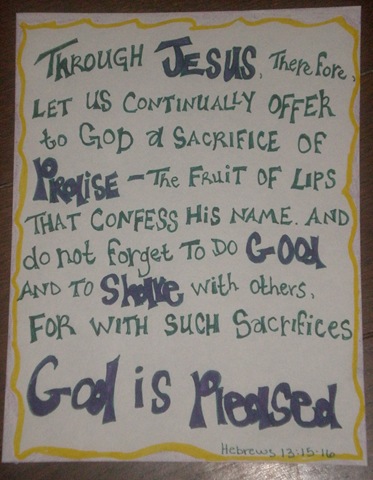 THROUGH JESUS, Therefore,
LET US CONTINUALLY OFFER
to GOD a SACRIFICE OF
PRAISE - The FRUIT OF LIPS
THAT CONFESS HIS NAME. AND
do not forget TO DO GOOD
AND TO Share with others,
FOR WITH SUCH Sacrifices
God is Pleased
Hebrews 13:15-16